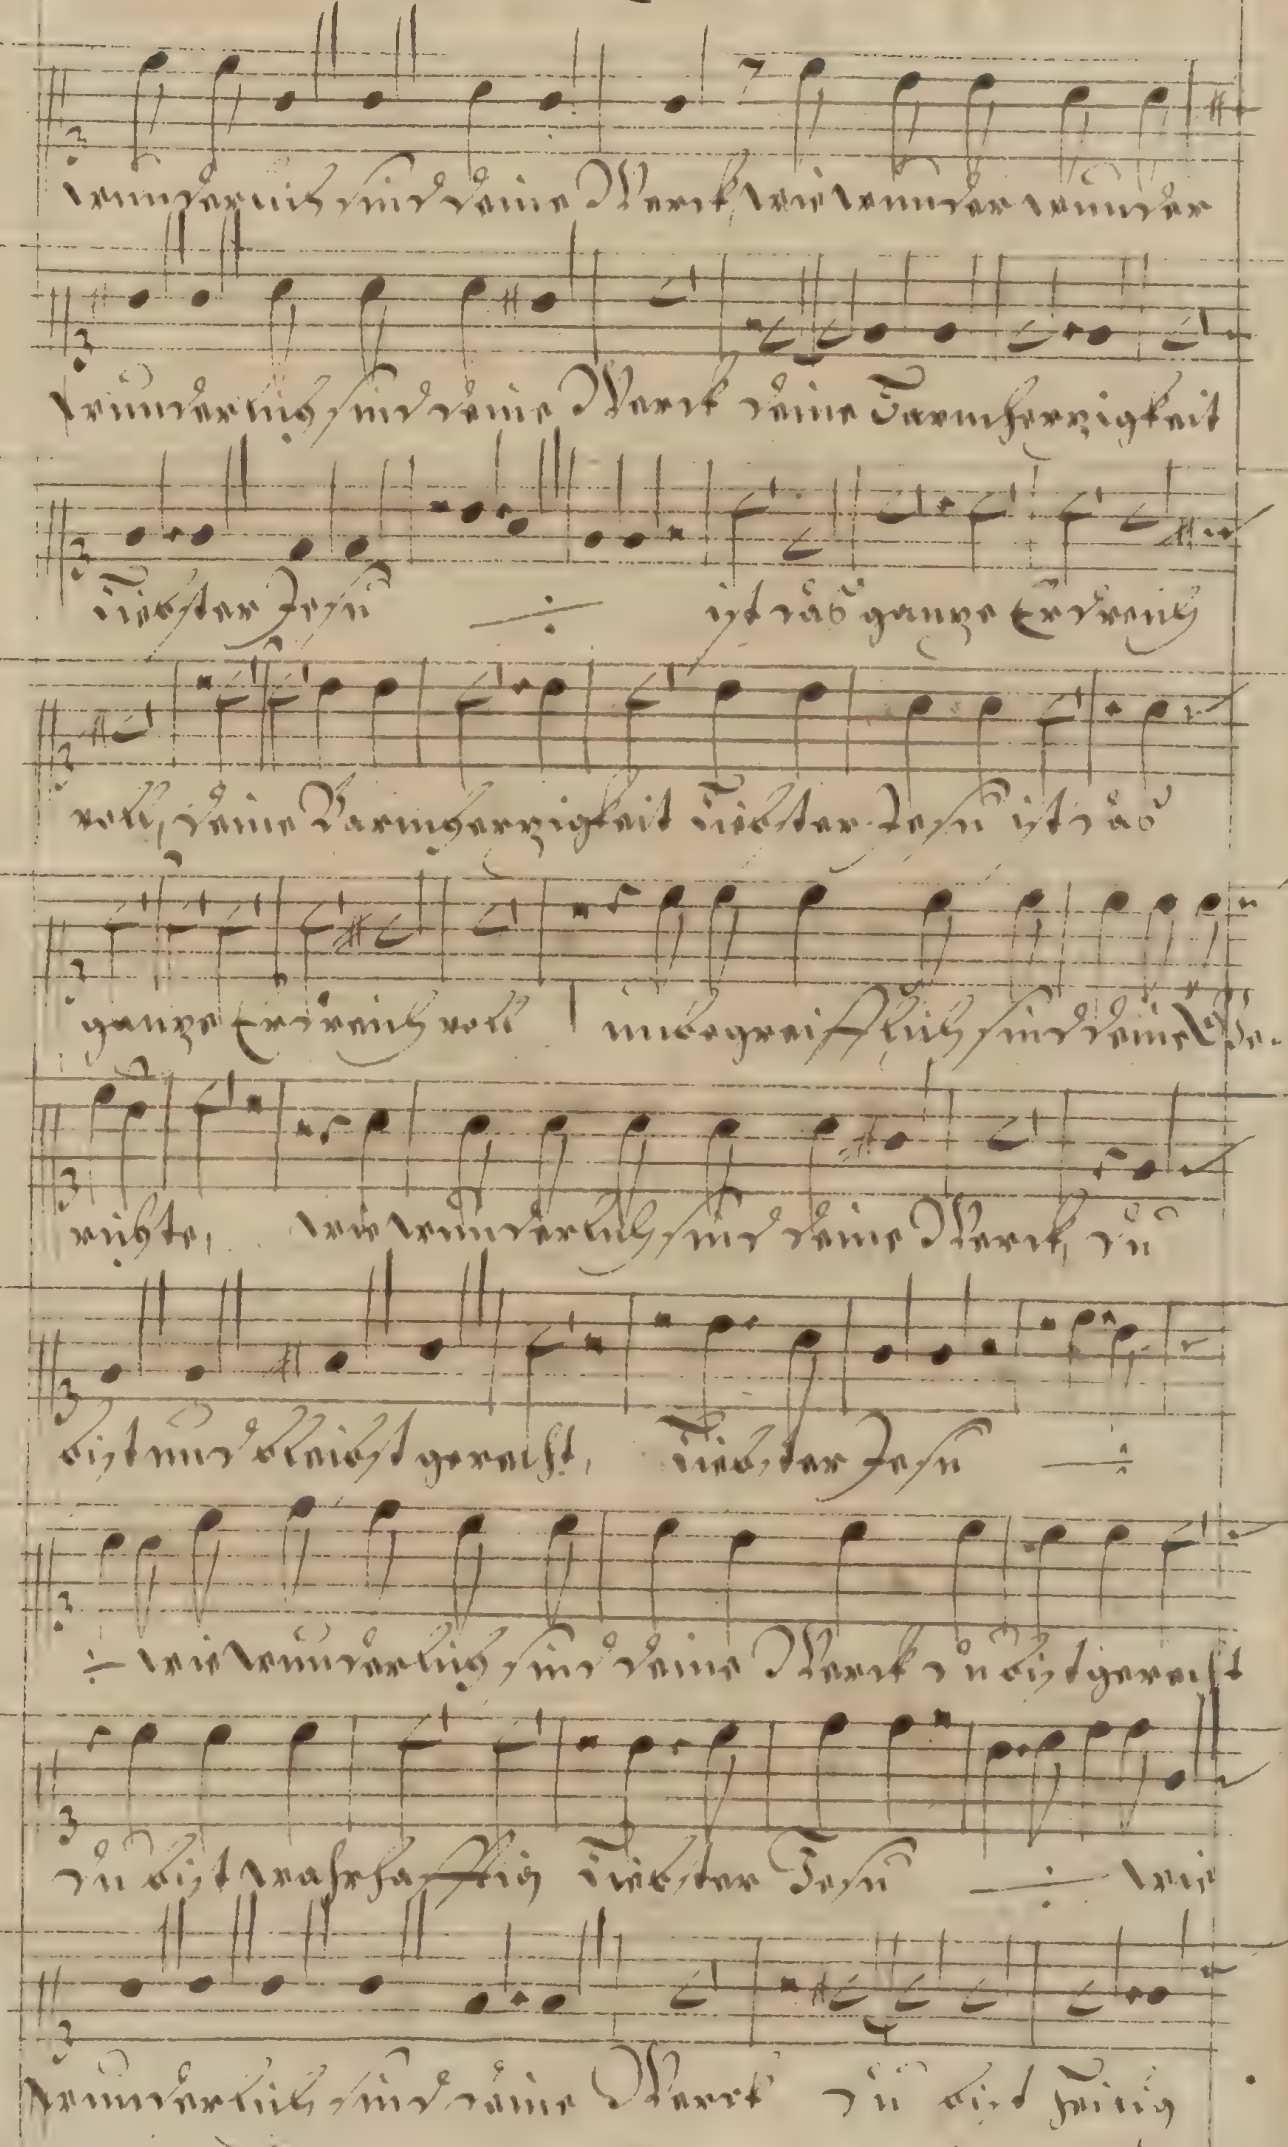 wunderlich sind deine Werck, wie wunder wunder
wunderlich sind deine Werck deine Barmherzigkeit
liebster Jesu ist das ganze Erdreich
voll, deine Barmherzigkeit liebster Jesu ist das
ganze Erdreich voll unbegreifflich sind deine Ge-
richte, wie wunderlich sind deine Werck, du
bist und bleibst gerecht, liebster Jesu
wie wunderlich sind deine Werck du bist gerecht
du bist wahrhafftig liebster Jesu wie
wunderlich sind deine Werck du bist heilig